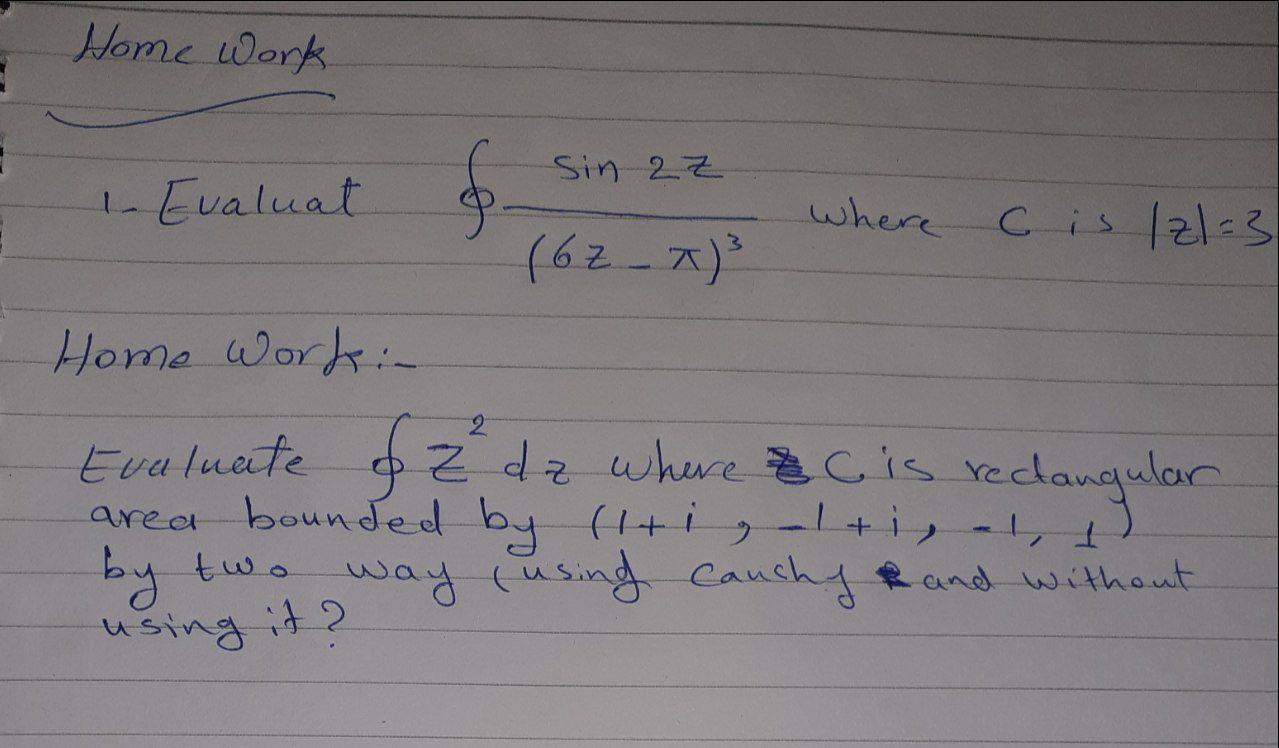 Home Work
1- Evaluat ∮ sin 2z / (6z - π)³ where C is |z|=3
Home Work:-
Evaluate ∮ z² dz where C is rectangular
area bounded by (1+i, -1+i, -1, 1)
by two way (using Cauchy and without
using it?